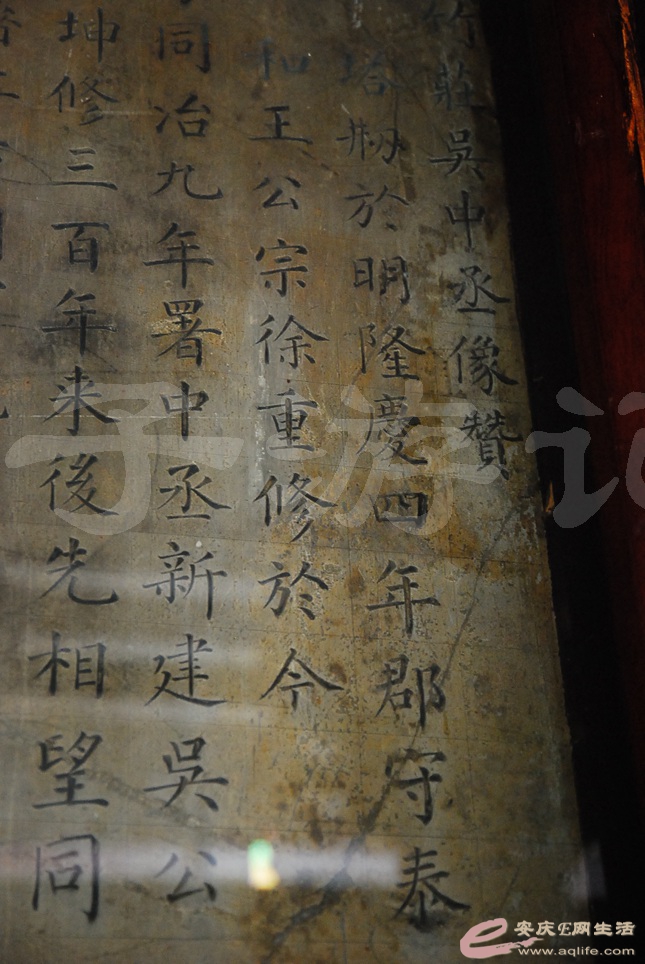 竹莊吳中丞像贊
塔刱於明隆慶四年郡守泰
和王公宗徐重修於今
同治九年署中丞新建吳公
坤修三百年来後先相望同
子游记
安庆E网生活
www.aqlife.com